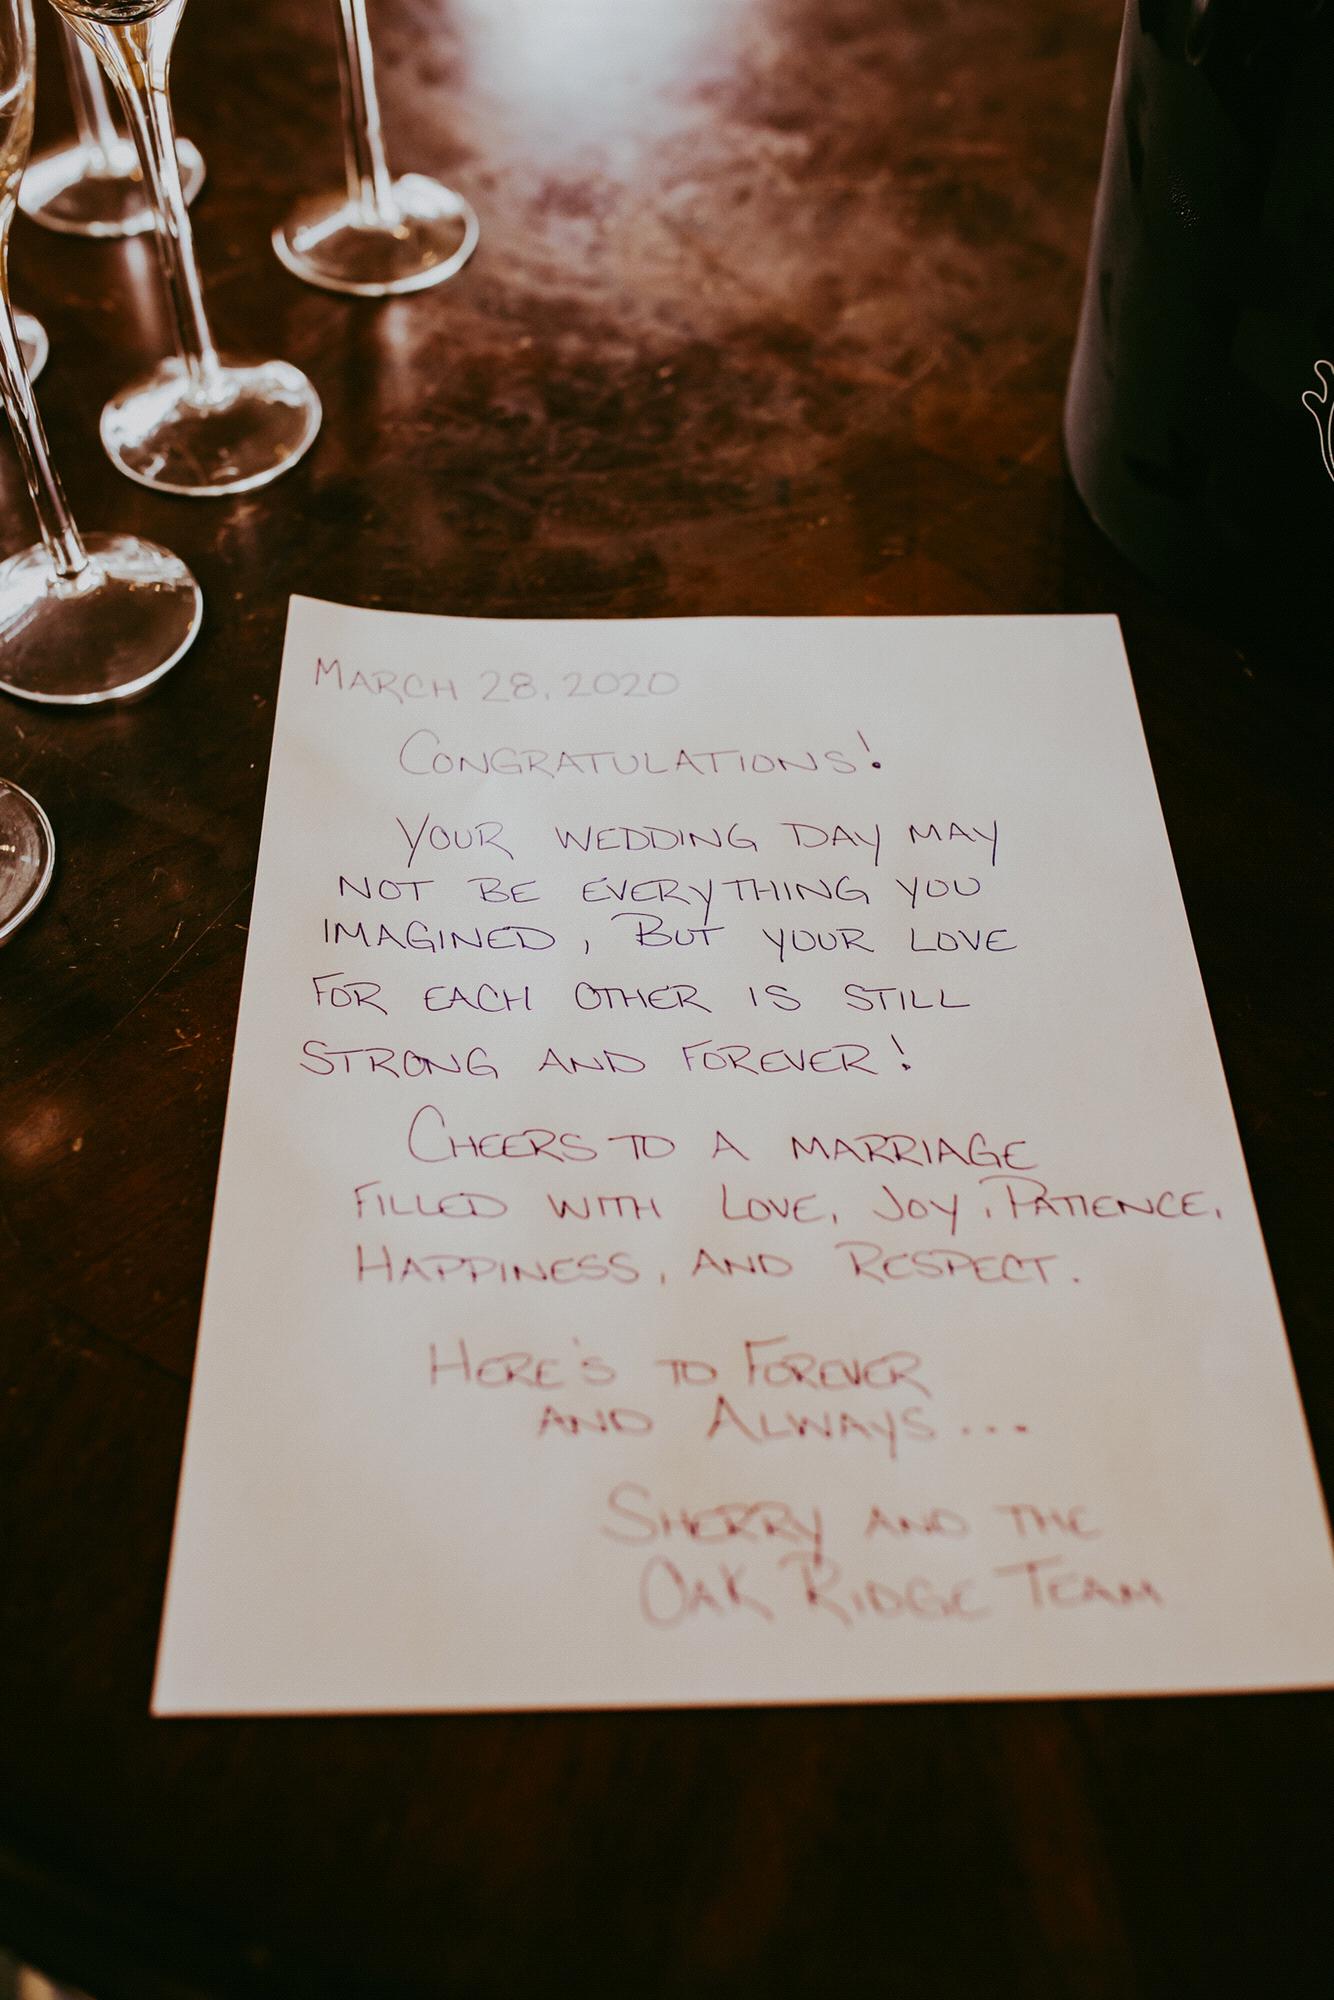 March 28, 2020
Congratulations!
Your wedding day may
not be everything you
imagined, But your love
for each other is still
strong and forever!
Cheers to a marriage
filled with Love, Joy, Patience,
Happiness, and Respect.
Here's to Forever
and Always...
Sherry and the
Oak Ridge Team